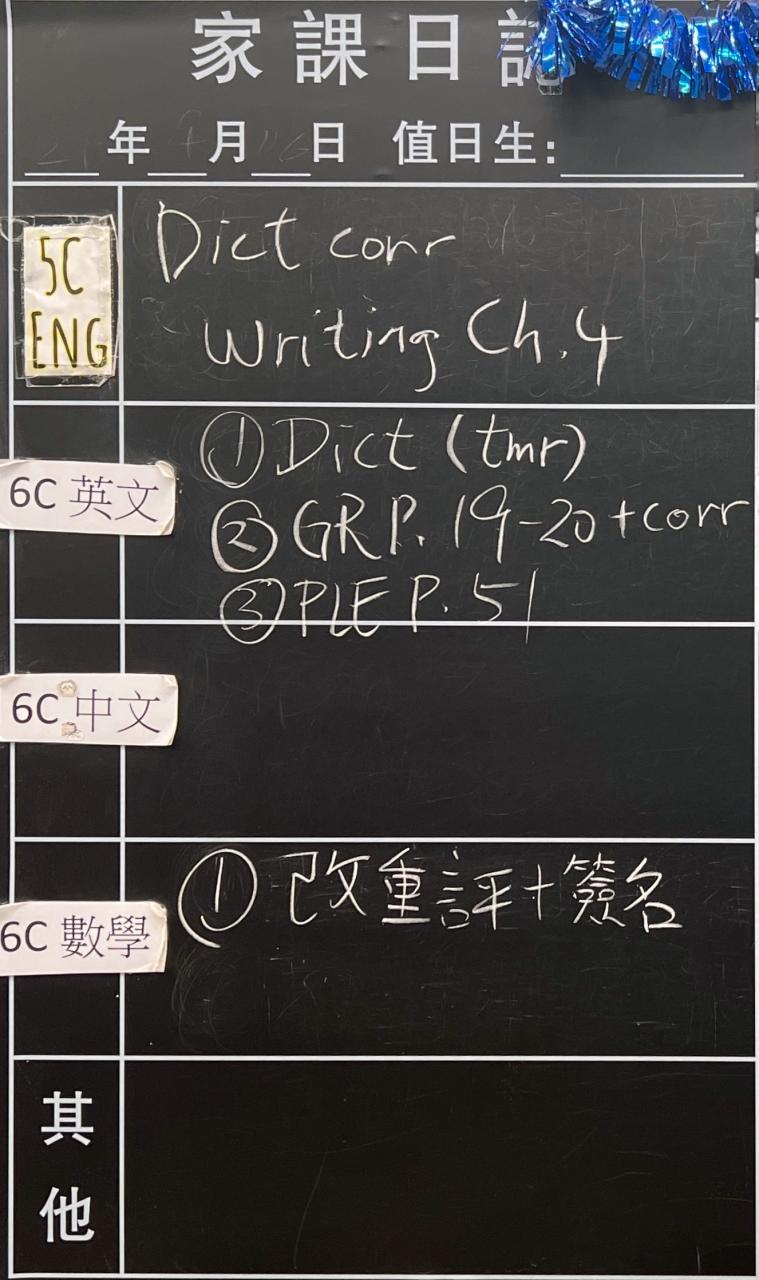 家課日記
年 月 日 值日生:
5C
ENG
Dict corr
Writing Ch.4
6C 英文
① Dict (tmr)
② GR P. 19-20 + corr
③ PLE P. 51
6C 中文
6C 數學
① 改重評+簽名
其
他